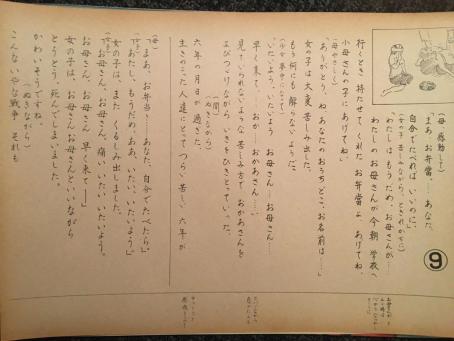 (母 感動して)
「まあ、お弁当…、あなた、
自分でたべればいいのに」
(女の子 苦しみながら、ときれがちに)
「わたしはもうだめ、お母さんが…
わたしのお母さんが今朝 学校へ
行くとき 持たせて くれた お弁当よ あげてね、
小母さんの子にあげてね」
「ありがとう、ね あなたのおうちどこ、お名前は……」
女の子は 大変 苦しみ出した。
もう 何にも 解らないようだ。
「いたいよう、いたいよう お母さん…お母さん……
早く来て、おか、おかあさん…」
見ていられないような 苦しみ方で おかあさんを
よびつづけながら いきをひきとっていった。
(間)
(ぬきながら)
六年の月日が過ぎた。
生きのこった人達にとって つらい 苦しい 六年が
(母)
「まあ、お弁当……あなた、自分でたべたら」
「あたし、もうだめ、ああ、いたい、いたいよう」
女の子は、また くるしみ出しました。
「お母さん、お母さん、痛い いたい いたいよう。
お母さん、お母さん 早く来て――」
女の子は、お母さん お母さんといいながら
とうとう 死んでしまいました。
(ぬきながら)
かわいそうですね、
こんないやな戦争、それも
⑨